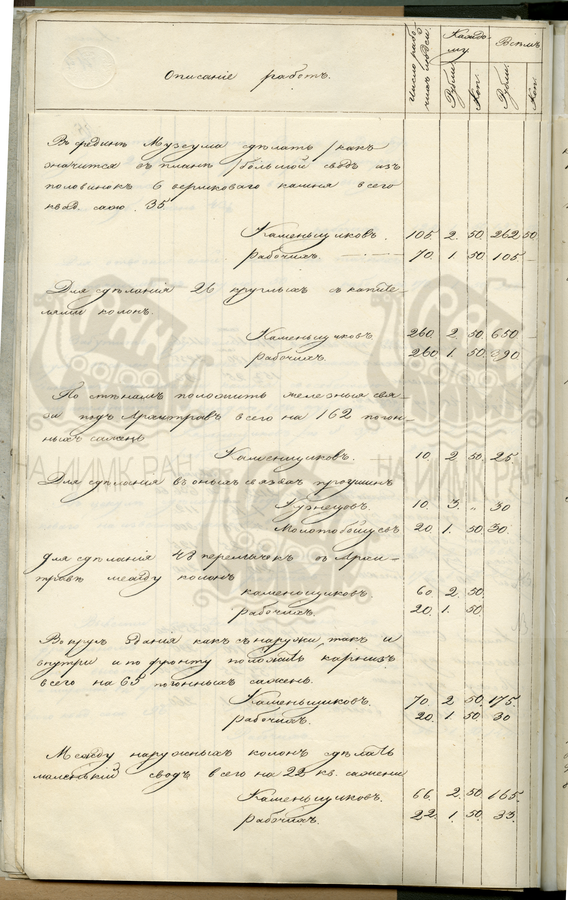 Описаніе работъ.
Число рабочихъ людей
Каждому
Всѣмъ
Рубли.
Коп.
Рубли.
Коп.
Въ срединѣ Музеума сдѣлать /какъ
значится въ планѣ/ большой сводъ изъ
половинокъ 6 вершковаго камня всего
квад. саж. 35
Каменьщиковъ. 105. 2. 50. 262 50
Рабочихъ. 70. 1 50 105 —
Для сдѣланія 26 круглыхъ съ капите-
лями колонъ.
Каменьщиковъ. 260. 2. 50. 650 —
Рабочихъ. 260 1. 50. 390
По стѣнамъ положить желѣзныя свя-
зи подъ Архитравъ всего на 162 погон-
ныхъ сажень
Каменщиковъ. 10. 2 50. 25
Для сдѣланія въ оныхъ связяхъ проушинъ
Кузнецовъ. 10. 3. " 30
Молотобойцевъ 20. 1. 50 30.
Для сдѣланія 48 перемычекъ въ Архи-
травѣ между колонъ
Каменьщиковъ. 60 2. 50.
Рабочихъ. 20. 1. 50
Вокругъ зданія какъ снаружи, такъ и
внутри и по фронту положить карнизъ
всего на 65 погонныхъ сажень.
Каменьщиковъ. 70. 2 50. 175.
Рабочихъ. 20. 1 50 30
Между наружныхъ колонъ сдѣлать
маленькій сводъ всего на 22 кв. сажени
Каменьщиковъ. 66. 2. 50. 165.
Рабочихъ. 22. 1. 50. 33.
НА ИИМК РАН
НА ИИМК РАН